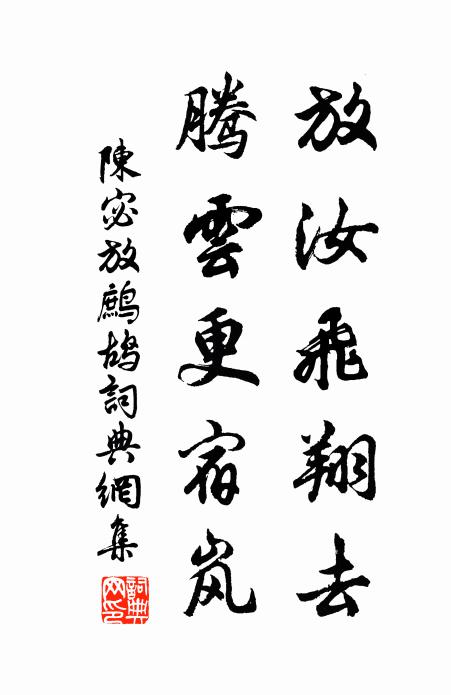 放汝飛翔去
騰雲更宿嵐
陳宓放鷓鴣詞典網集
詞典網印